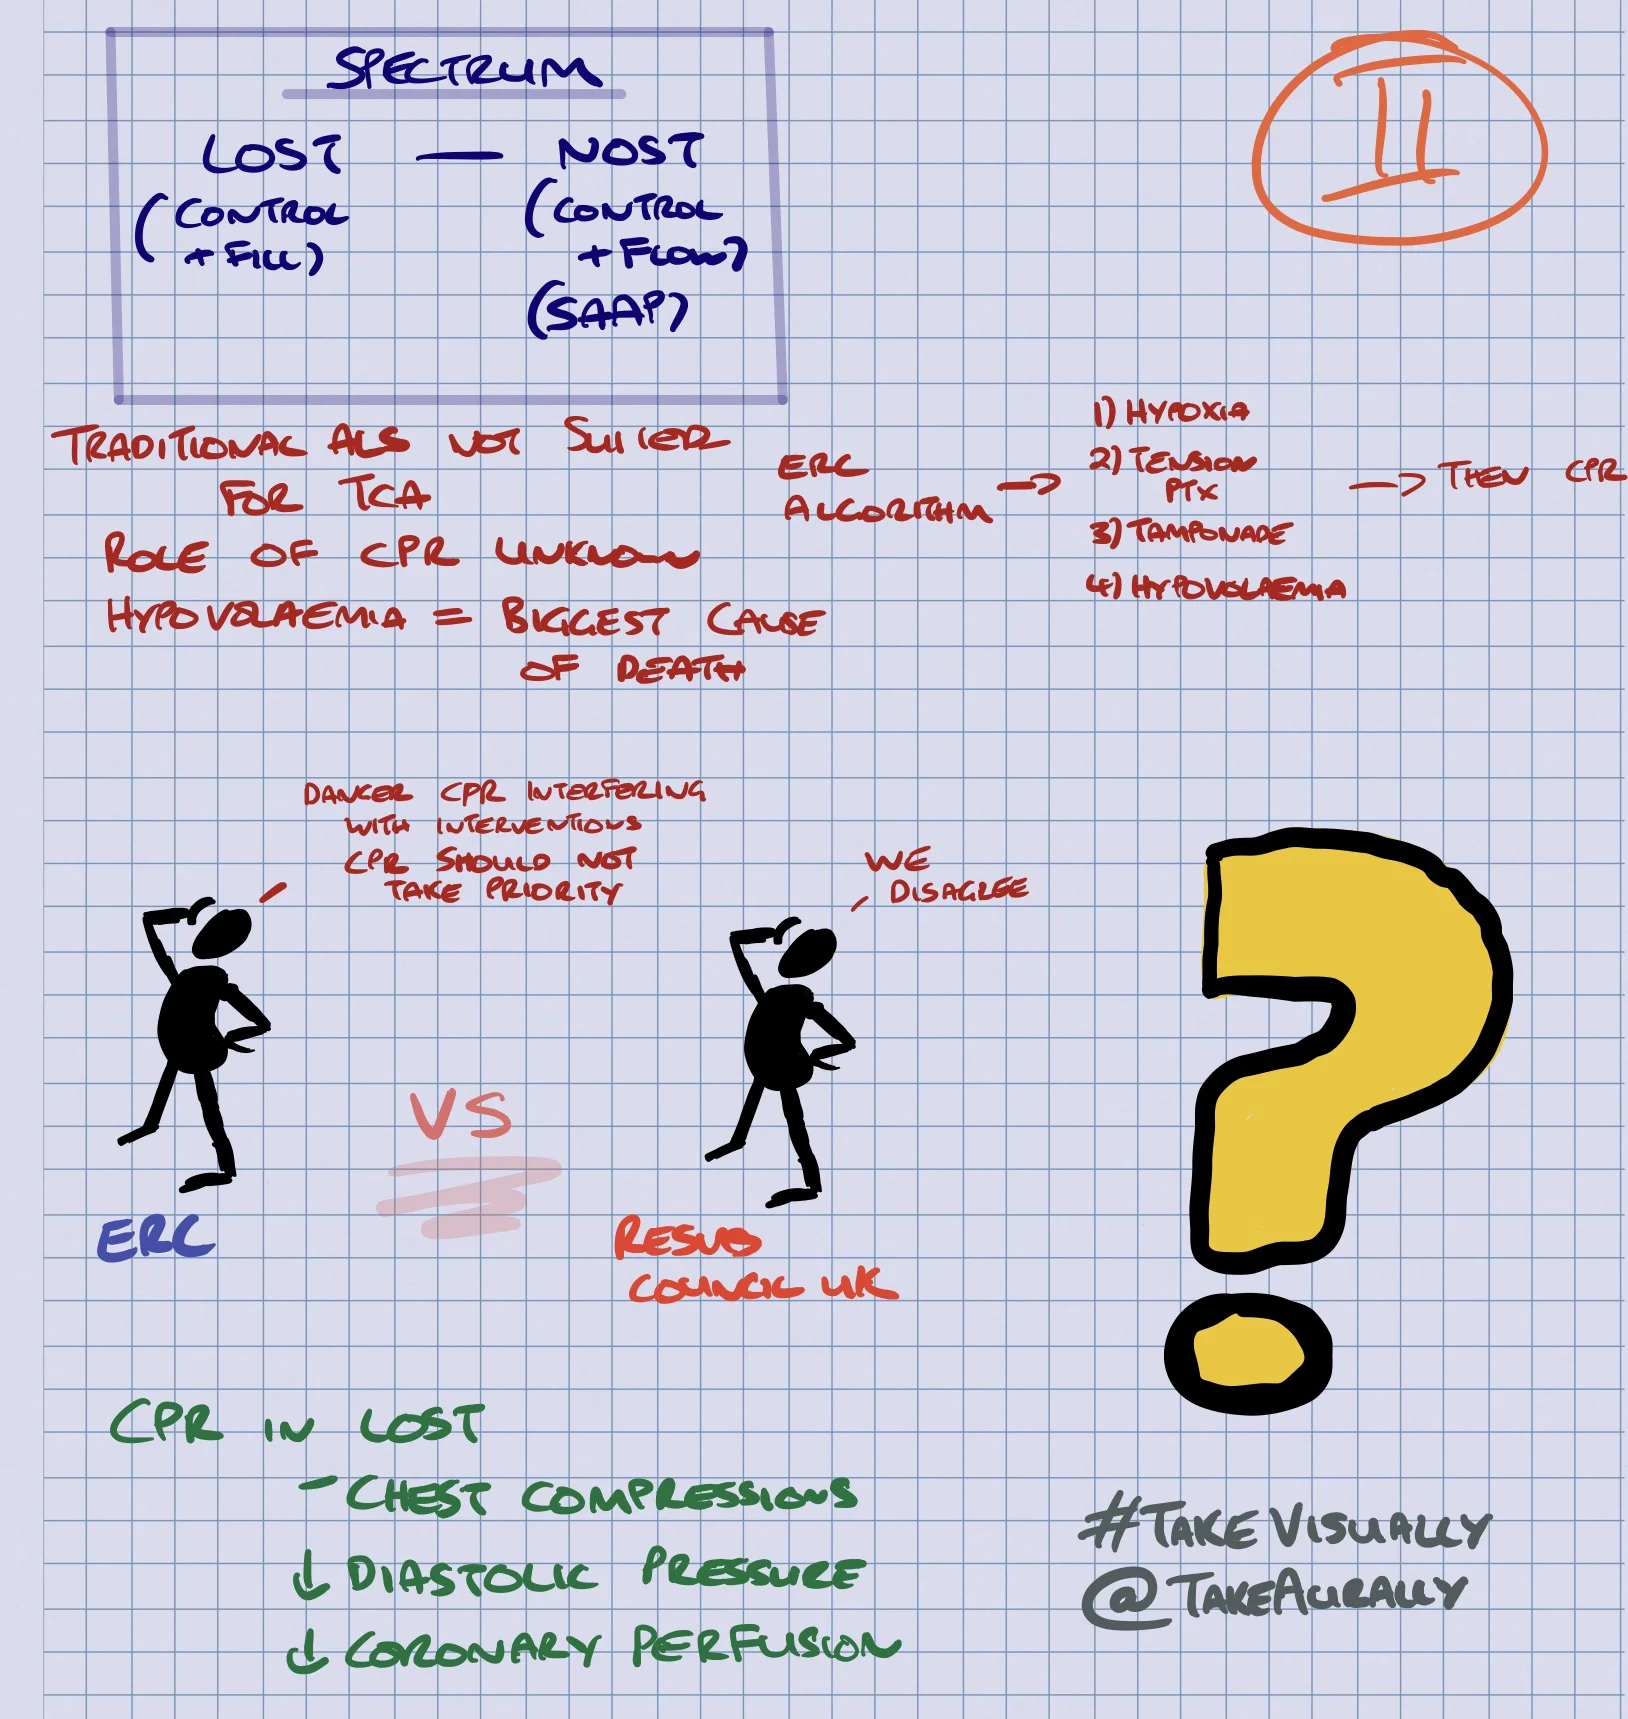 SPECTRUM
LOST — NOST
(CONTROL + FILL)
(CONTROL + FLOW)
(SAAP)
II
TRADITIONAL ALS NOT SUITED
FOR TCA
ROLE OF CPR UNKNOWN
HYPOVOLAEMIA = BIGGEST CAUSE
OF DEATH
ERC
ALGORITHM →
1) HYPOXIA
2) TENSION
PTX
3) TAMPONADE
4) HYPOVOLAEMIA
→ THEN CPR
DANGER CPR INTERFERING
WITH INTERVENTIONS
CPR SHOULD NOT
TAKE PRIORITY
WE
DISAGREE
VS
ERC
RESUS
COUNCIL UK
?
CPR IN LOST
- CHEST COMPRESSIONS
↓ DIASTOLIC PRESSURE
↓ CORONARY PERFUSION
#TAKEVISUALLY
@TAKEAURALLY